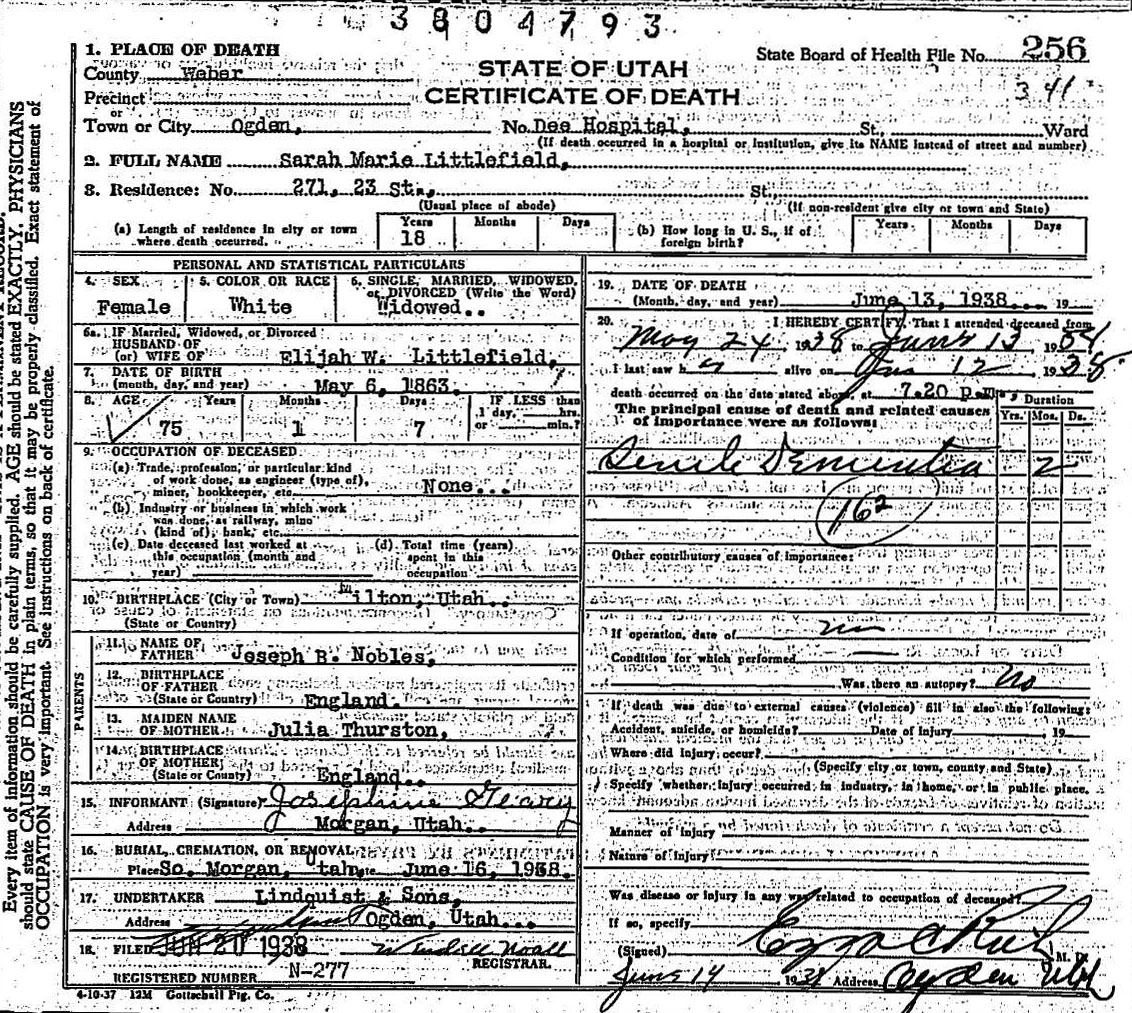 3804793
1. PLACE OF DEATH
State Board of Health File No. 256
County Weber
STATE OF UTAH
3 41
Precinct
CERTIFICATE OF DEATH
or
Town or City Ogden, No. Dee Hospital, St., Ward
(If death occurred in a hospital or institution, give its NAME instead of street and number)
2. FULL NAME Sarah Marie Littlefield,
3. Residence: No. 271, 23 St., St.
(Usual place of abode) (If non-resident give city or town and State)
(a) Length of residence in city or town where death occurred.
Years Months Days
18
(b) How long in U. S., if of foreign birth?
Years Months Days
PERSONAL AND STATISTICAL PARTICULARS
4. SEX 5. COLOR OR RACE 6. SINGLE, MARRIED, WIDOWED, or DIVORCED (Write the Word)
Female White Widowed..
6a. IF Married, Widowed, or Divorced
HUSBAND OF
(or) WIFE OF Elijah W. Littlefield,
7. DATE OF BIRTH
(month, day, and year) May 6, 1863.
8. AGE Years Months Days IF LESS than
1 day, hrs.
or min.?
75 1 7
9. OCCUPATION OF DECEASED
(a) Trade, profession, or particular kind
of work done, as engineer (type of),
miner, bookkeeper, etc. None...
(b) Industry or business in which work
was done, as railway, mine
(kind of), bank, etc.
(c) Date deceased last worked at
this occupation (month and
year)
(d) Total time (years)
spent in this
occupation
10. BIRTHPLACE (City or Town) Milton, Utah..
(State or Country)
PARENTS
11. NAME OF
FATHER Joseph B. Nobles,
12. BIRTHPLACE
OF FATHER
(State or Country) England.
13. MAIDEN NAME
OF MOTHER Julia Thurston,
14. BIRTHPLACE
OF MOTHER
(State or Country) England..
15. INFORMANT (Signature) Josephine Geary
Address Morgan, Utah.
16. BURIAL, CREMATION, OR REMOVAL
Place So. Morgan, Utah Date June 16, 1938.
17. UNDERTAKER Lindquist & Sons,
Address Ogden, Utah...
18. FILED JUN 20 1938 Wendell Noall
REGISTRAR.
REGISTERED NUMBER N-277
4-10-37 12M Gottschall Ptg. Co.
19. DATE OF DEATH
(Month, day, and year) June 13, 1938... 19
20. I HEREBY CERTIFY, That I attended deceased from
May 24, 1938 to June 13 19
I last saw h alive on 12 1938.
death occurred on the date stated above, at 7.20 p.m.,
The principal cause of death and related causes
of importance were as follows:
Duration
Yrs. Mos. Ds.
Senile Dementia 2
162
Other contributory causes of importance:
If operation, date of
Condition for which performed
Was there an autopsy? No
If death was due to external causes (violence) fill in also the following:
Accident, suicide, or homicide? Date of injury 19
Where did injury occur?
(Specify city or town, county and State)
Specify whether injury occurred in industry, in home, or in public place.
Manner of injury
Nature of injury
Was disease or injury in any way related to occupation of deceased?
If so, specify
(Signed) Ezra C Rich M. D.
June 14 193 Address Ogden Utah
Every item of information should be carefully supplied. AGE should be stated EXACTLY. PHYSICIANS
should state CAUSE OF DEATH in plain terms, so that it may be properly classified. Exact statement of
OCCUPATION is very important. See instructions on back of certificate.